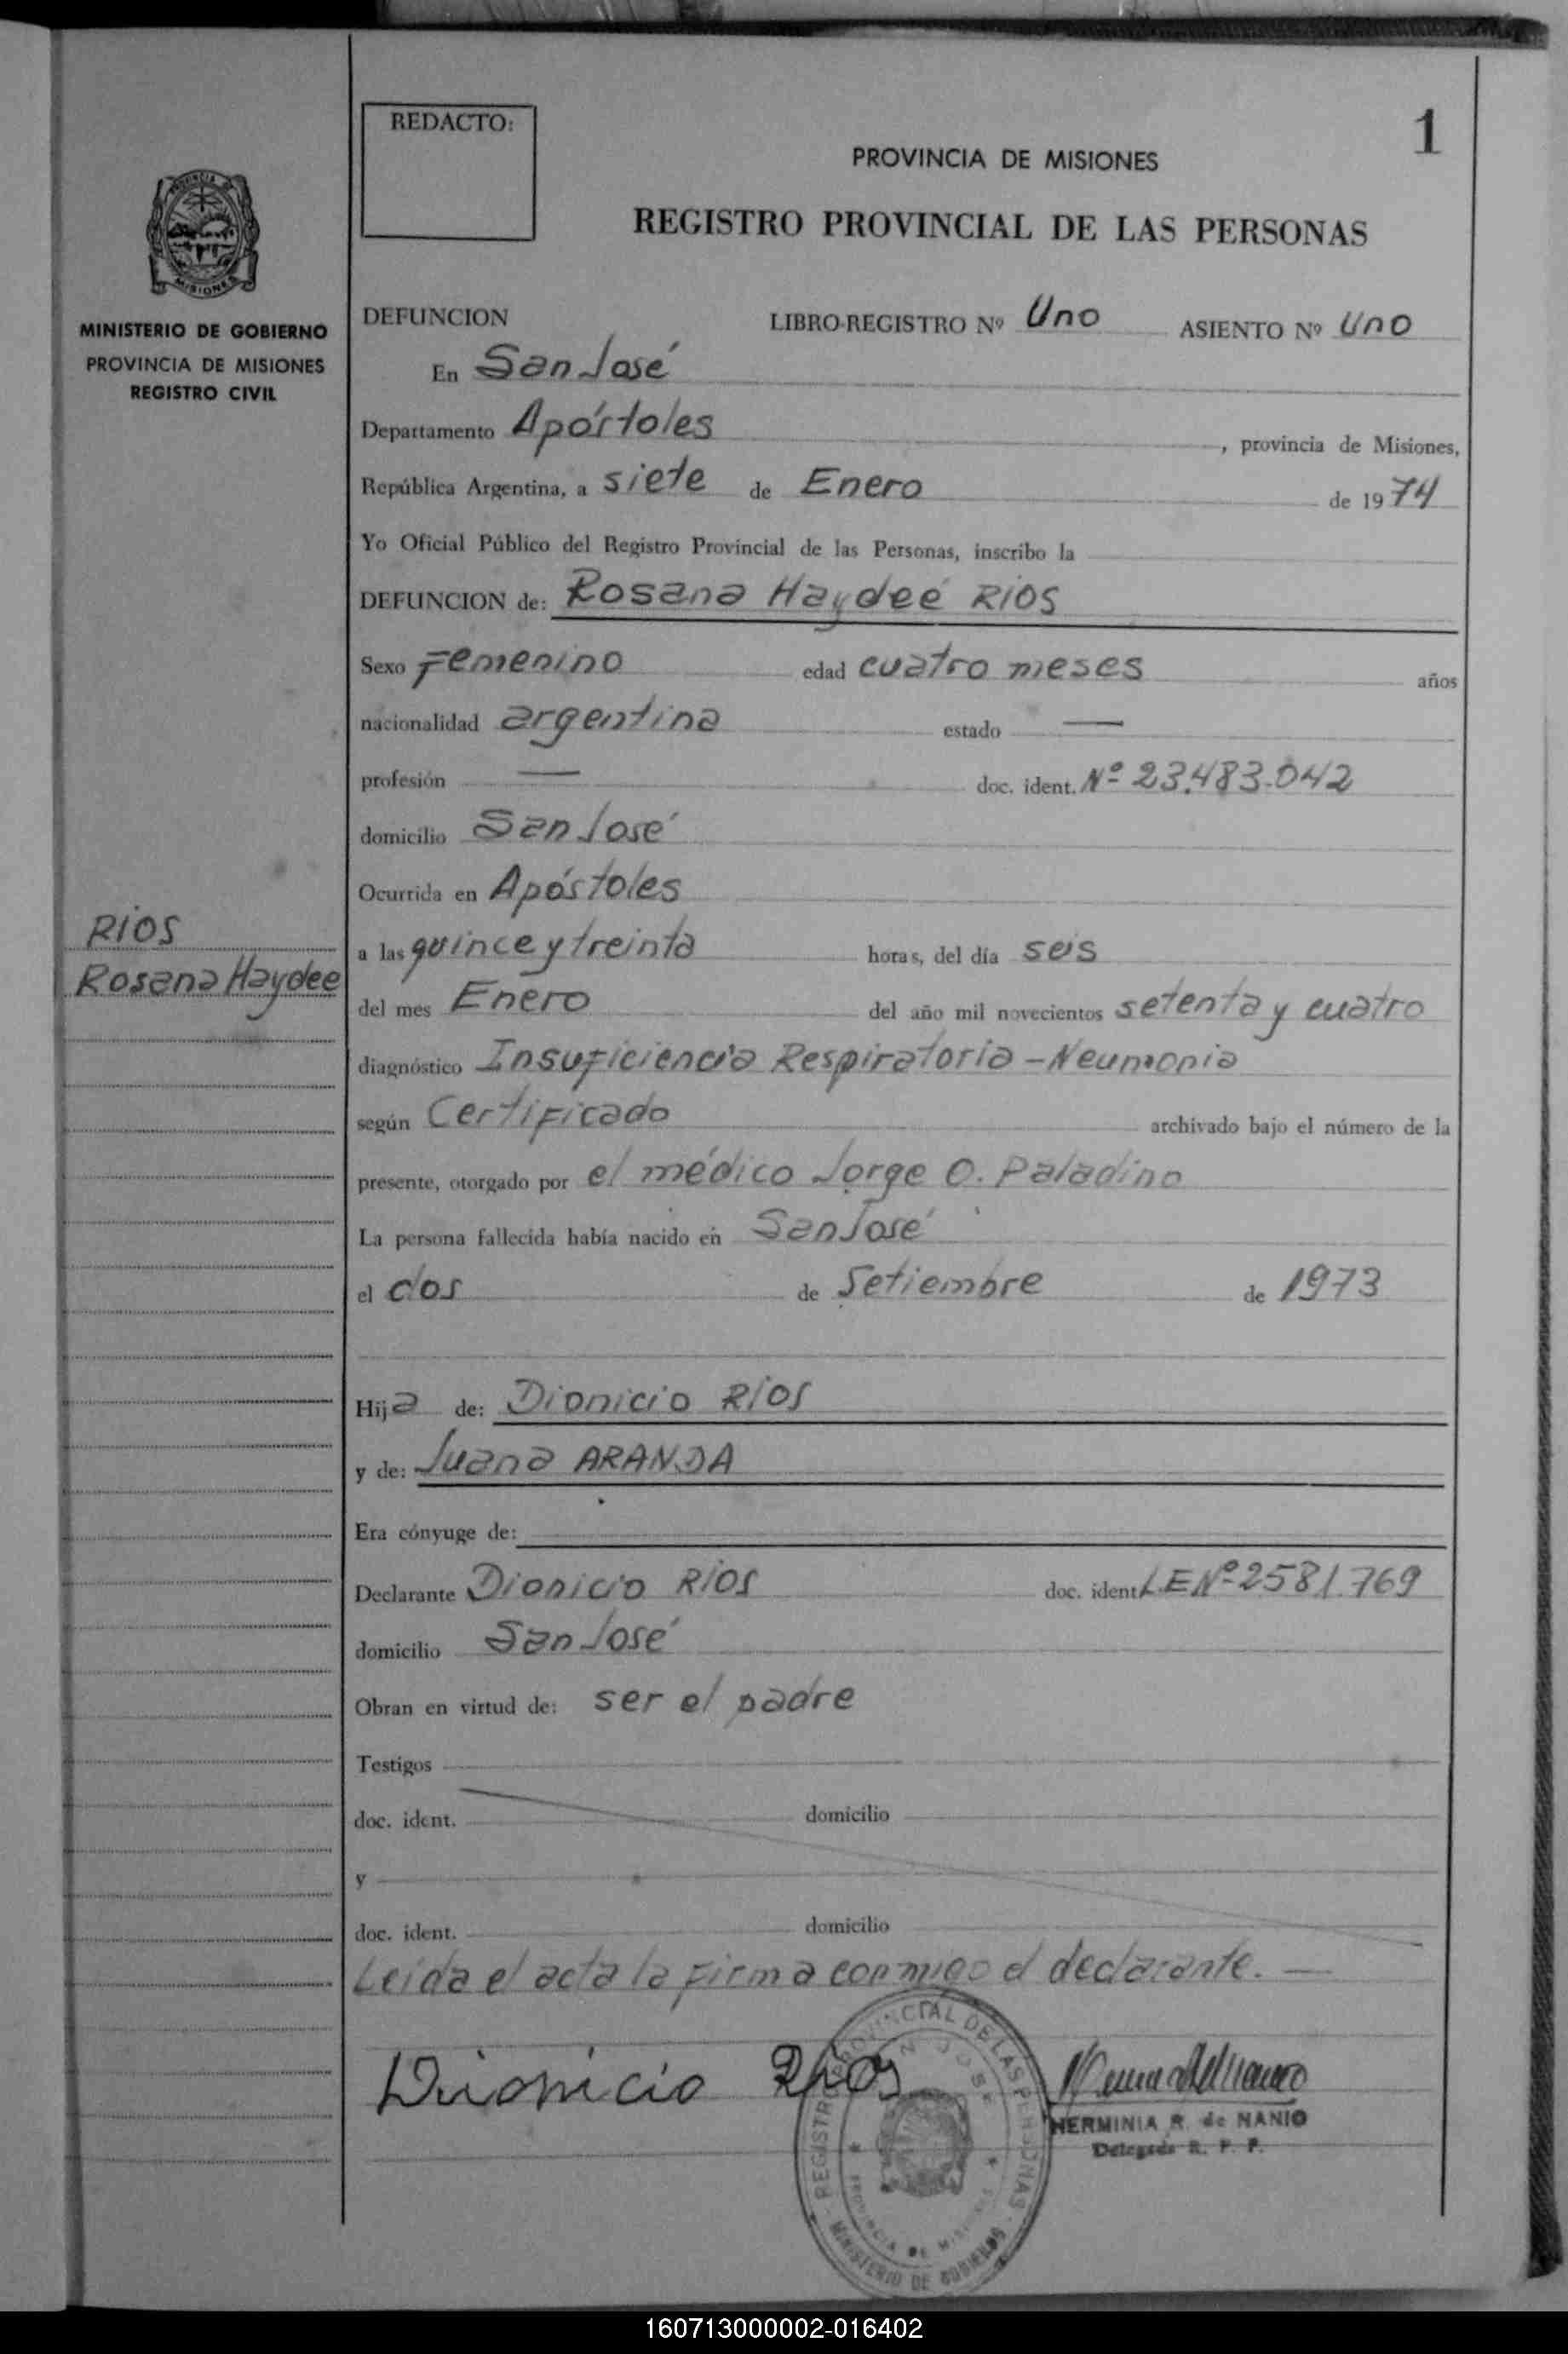 REDACTO:
1
PROVINCIA DE MISIONES
REGISTRO PROVINCIAL DE LAS PERSONAS
PROVINCIA DE
MISIONES
MINISTERIO DE GOBIERNO
PROVINCIA DE MISIONES
REGISTRO CIVIL
RIOS
Rosana Haydee
DEFUNCION LIBRO-REGISTRO Nº Uno ASIENTO Nº Uno
En San José
Departamento Apóstoles, provincia de Misiones,
República Argentina, a siete de Enero de 1974
Yo Oficial Público del Registro Provincial de las Personas, inscribo la
DEFUNCION de: Rosana Haydeé RIOS
Sexo Femenino edad cuatro meses años
nacionalidad argentina estado —
profesión — doc. ident. Nº 23.483.042
domicilio San José
Ocurrida en Apóstoles
a las quince y treinta horas, del día seis
del mes Enero del año mil novecientos setenta y cuatro
diagnóstico Insuficiencia Respiratoria - Neumonia
según Certificado archivado bajo el número de la
presente, otorgado por el médico Jorge O. Paladino
La persona fallecida había nacido en San José
el dos de Setiembre de 1973
Hija de: Dionicio RIOS
y de: Juana ARANDA
Era cónyuge de:
Declarante Dionicio RIOS doc. ident. L.E Nº 2581.769
domicilio San José
Obran en virtud de: ser el padre
Testigos
doc. ident. domicilio
y
doc. ident. domicilio
Leída el acta la firma conmigo el declarante. —
Dionicio Rios
REGISTRO PROVINCIAL DE LAS PERSONAS
SAN JOSE
PROVINCIA DE MISIONES
MINISTERIO DE GOBIERNO
HERMINIA R. de NANIO
Delegada R. P. P.
160713000002-016402